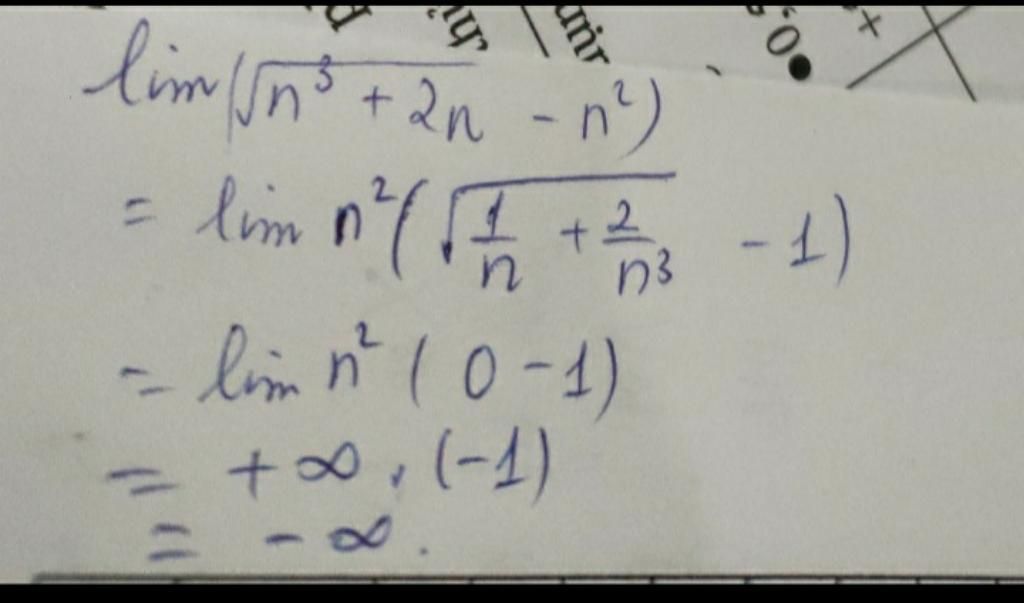 lim(√n³ + 2n - n²)
= lim n²(√1/n + 2/n³ - 1)
= lim n² ( 0 - 1)
= + ∞ . (-1)
= - ∞.